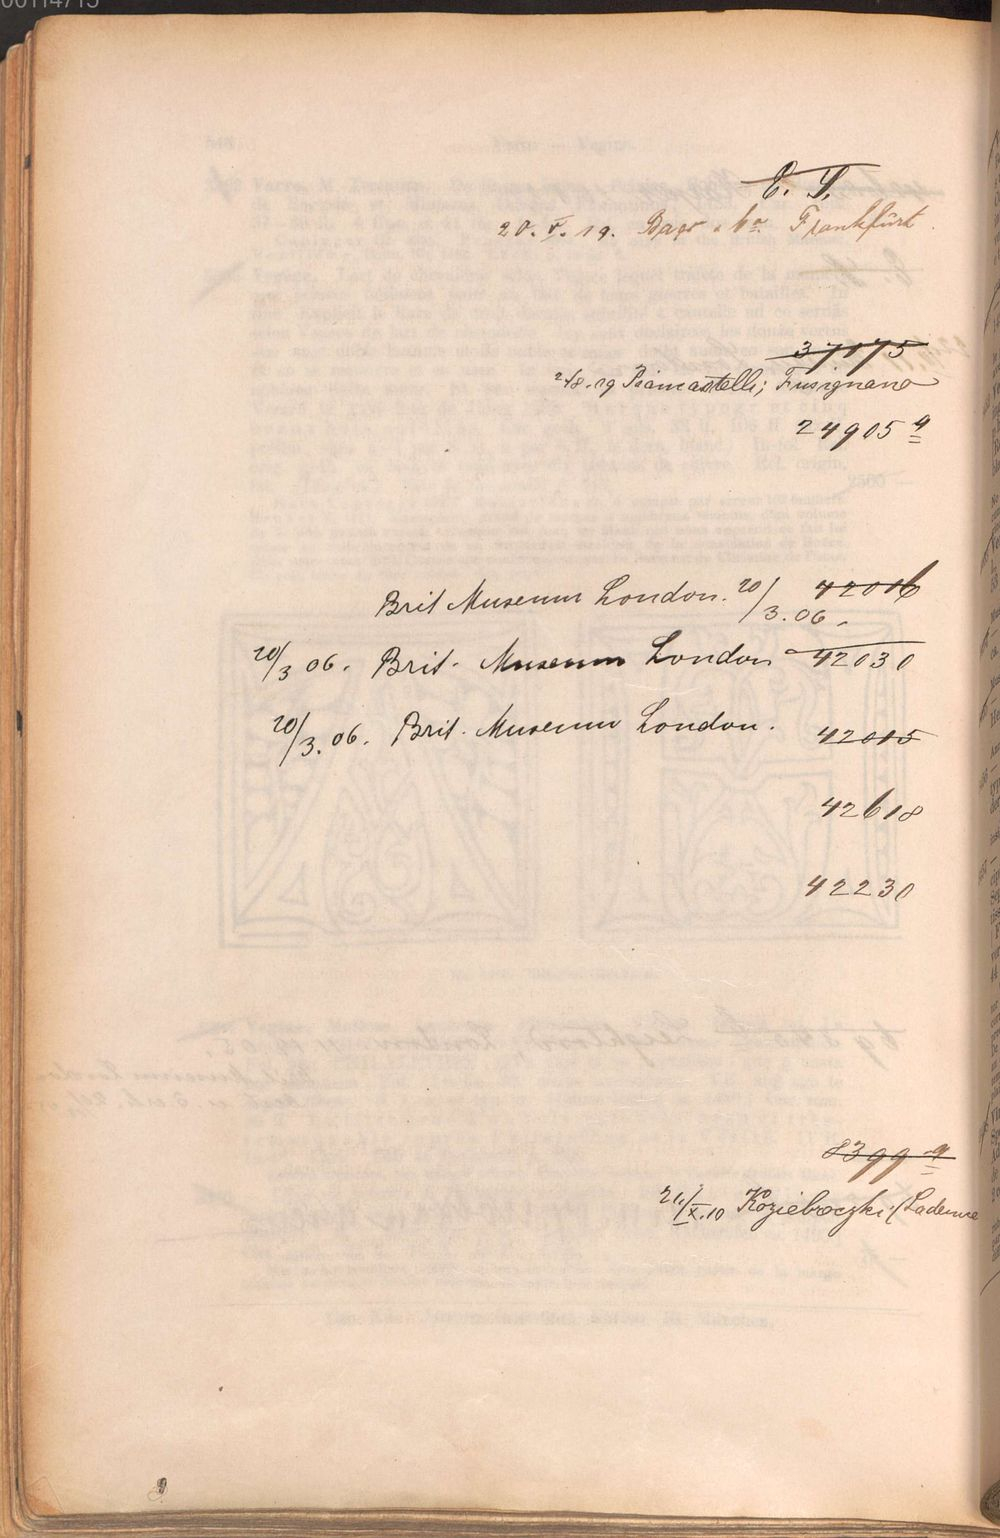 00114713
E. S.
20. V. 19. Baer & Co. Frankfurt.
37175
2/8.19 Piancastelli; Fusignano
24905 a
Brit Museum London. 20/3.06. 42016
20/3 06. Brit. Museum London 42030
20/3. 06. Brit. Museum London. 42015
42618
42230
8399 a
21/X.10 Koziebroczki (Ladenne